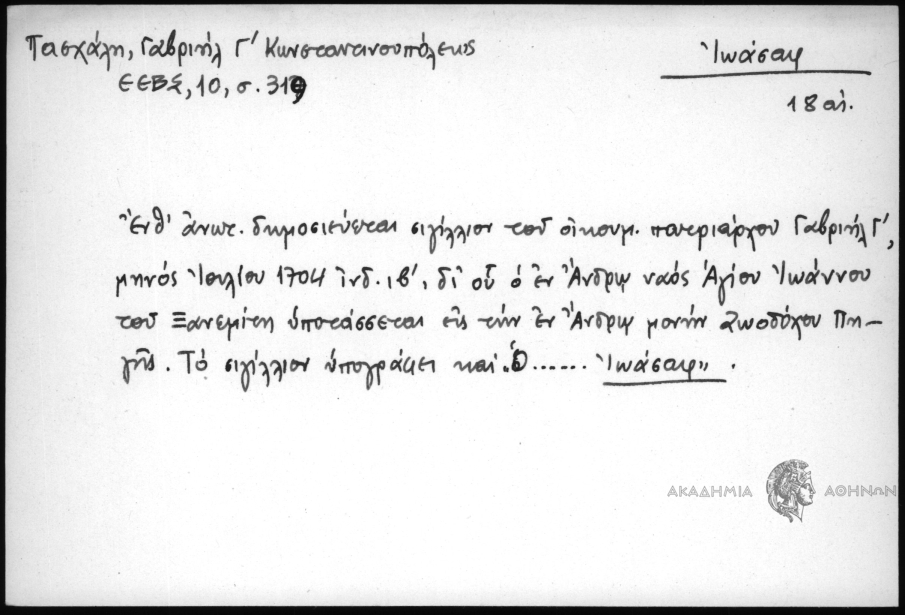 Πασχάλη, Γαβριήλ Γ' Κωνσταντινουπόλεως
ΕΕΒΣ, 10, σ. 319
Ἰωάσαφ
18 αἰ.
Ἔνθ' ἀνωτ. δημοσιεύεται σιγίλλιον τοῦ οἰκουμ. πατριάρχου Γαβριήλ Γ',
μηνός Ἰουλίου 1704 ἰνδ. ιβ', δι' οὗ ὁ ἐν Ἄνδρῳ ναός Ἁγίου Ἰωάννου
τοῦ Ξανεμίτη ὑποτάσσεται εἰς τήν ἐν Ἄνδρῳ μονήν Ζωοδόχου Πη-
γῆς. Τό σιγίλλιον ὑπογράφει καί "Ὁ ...... Ἰωάσαφ".
ΑΚΑΔΗΜΙΑ ΑΘΗΝΩΝ